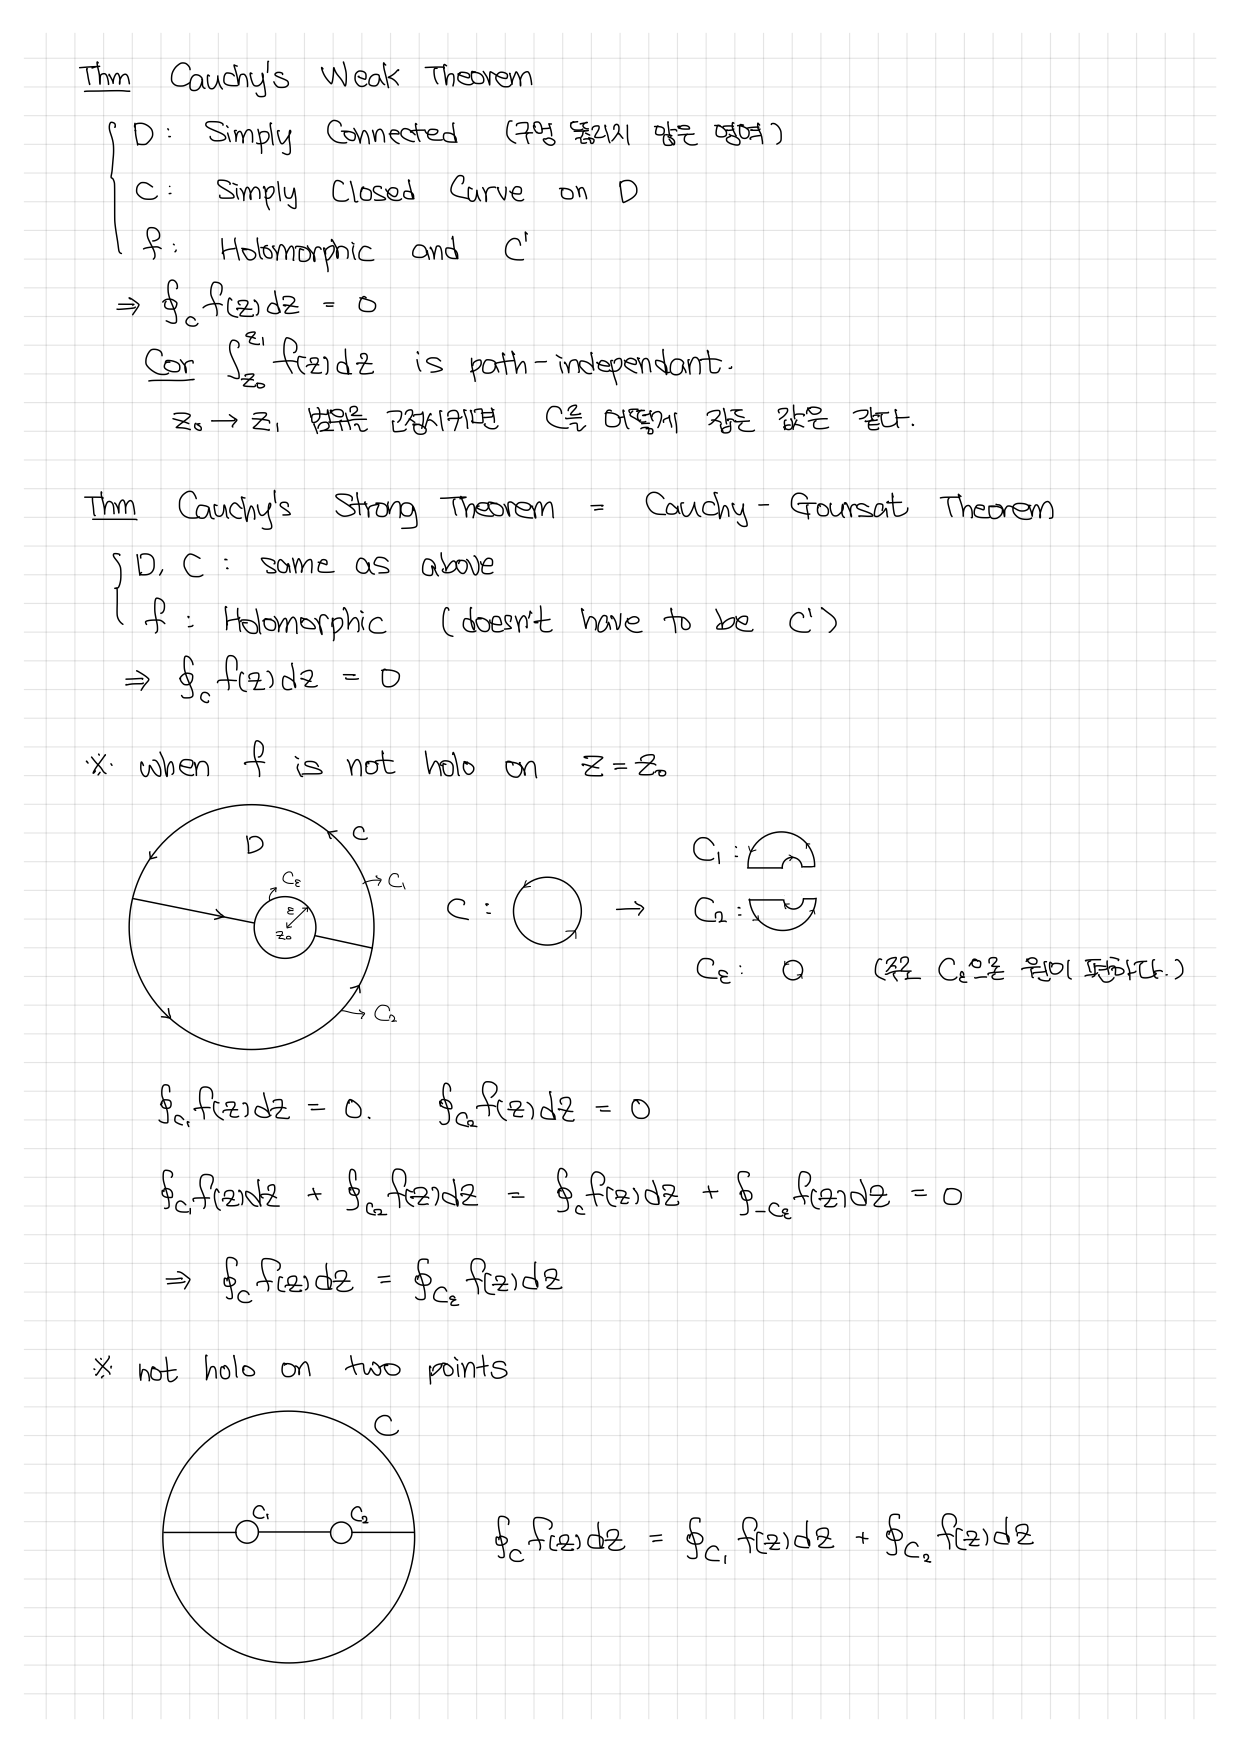 Thm Cauchy's Weak Theorem
D: Simply Connected (구멍 뚫리지 않은 영역)
C: Simply Closed Curve on D
f: Holomorphic and C¹
⇒ ∮_C f(z)dz = 0
Cor ∫_{z₀}^{z₁} f(z)dz is path-independant.
z₀ → z₁ 범위를 고정시키면 C를 어떻게 잡든 값은 같다.
Thm Cauchy's Strong Theorem = Cauchy - Goursat Theorem
D, C : same as above
f : Holomorphic (doesn't have to be C¹)
⇒ ∮_C f(z)dz = 0
※ when f is not holo on z = z₀
D
C
C_ε
C₁
ε
z₀
C₂
C : →
C₁ :
C₂ :
C_ε : (주로 C_ε으로 원이 편하다.)
∮_{C₁} f(z)dz = 0. ∮_{C₂} f(z)dz = 0
∮_{C₁} f(z)dz + ∮_{C₂} f(z)dz = ∮_C f(z)dz + ∮_{-C_ε} f(z)dz = 0
⇒ ∮_C f(z)dz = ∮_{C_ε} f(z)dz
※ not holo on two points
C
C₁ C₂
∮_C f(z)dz = ∮_{C₁} f(z)dz + ∮_{C₂} f(z)dz